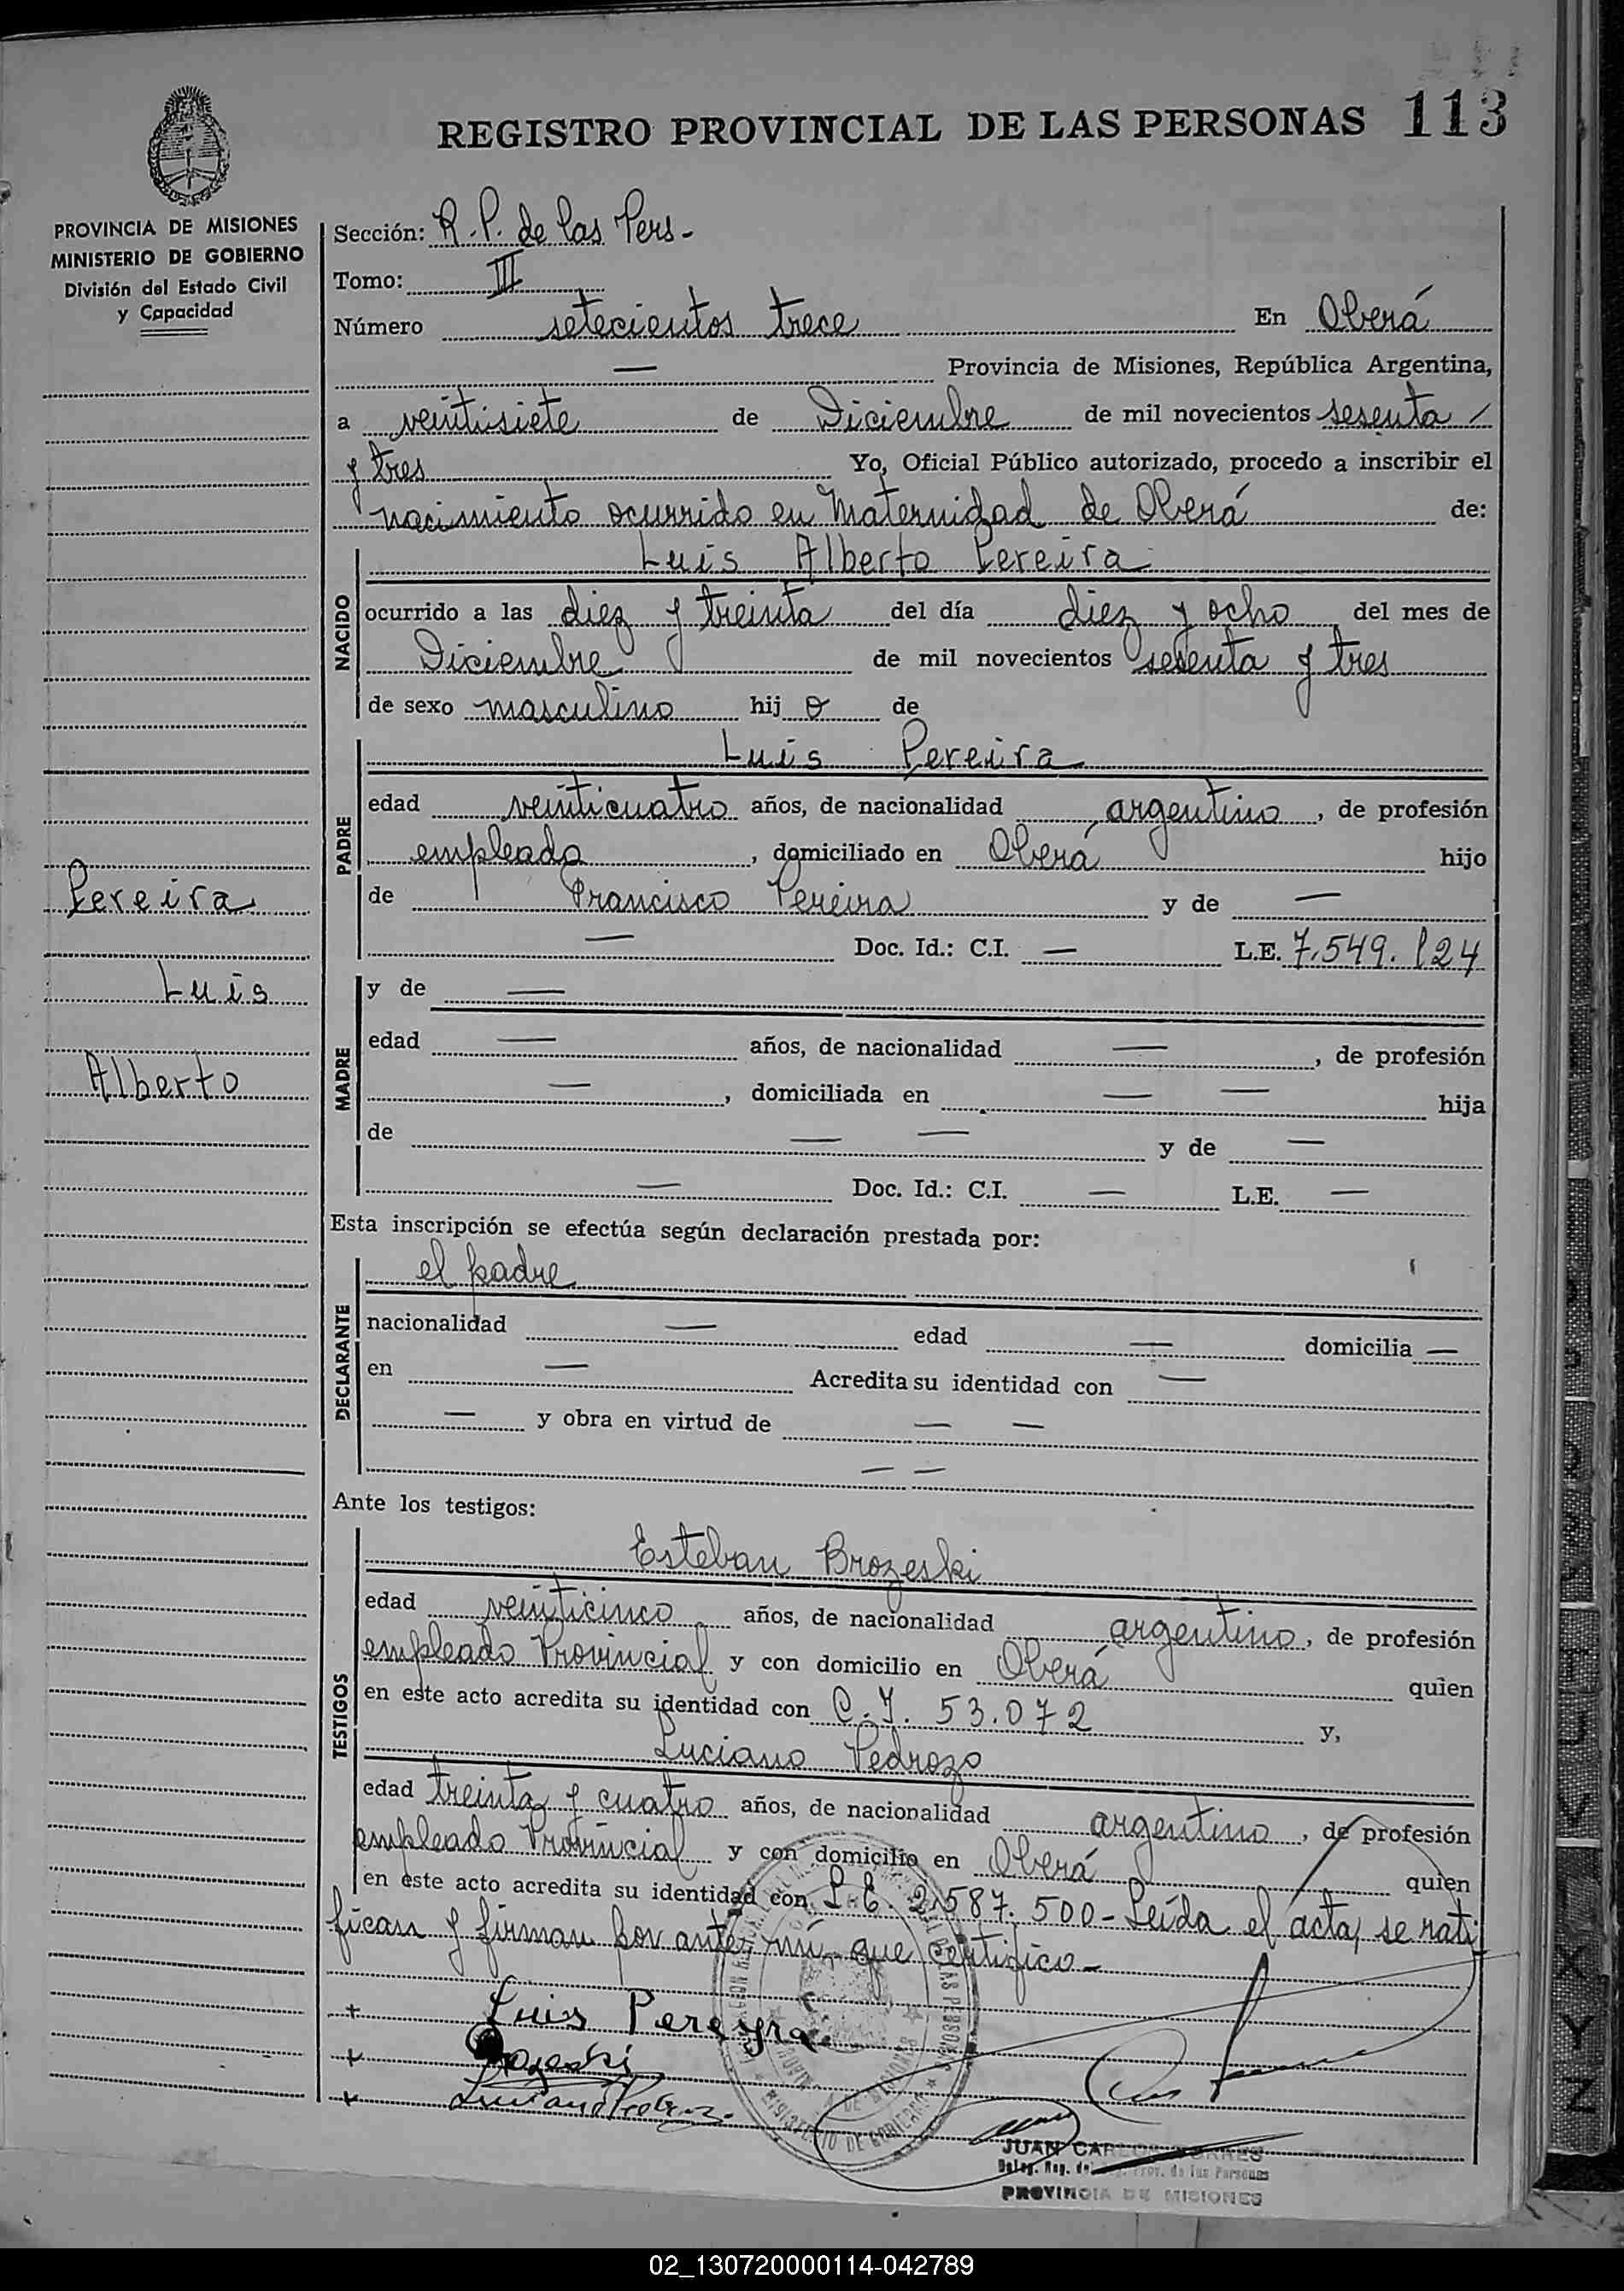 REGISTRO PROVINCIAL DE LAS PERSONAS 113
PROVINCIA DE MISIONES
MINISTERIO DE GOBIERNO
División del Estado Civil
y Capacidad
Pereira
Luis
Alberto
Sección: R. P. de las Pers.-
Tomo: III
Número setecientos trece En Oberá
— Provincia de Misiones, República Argentina,
a veintisiete de Diciembre de mil novecientos sesenta /
y tres Yo, Oficial Público autorizado, procedo a inscribir el
nacimiento ocurrido en Maternidad de Oberá de:
NACIDO
Luis Alberto Pereira
ocurrido a las diez y treinta del día diez y ocho del mes de
Diciembre de mil novecientos sesenta y tres
de sexo masculino hij o de
PADRE
Luis Pereira
edad veinticuatro años, de nacionalidad argentino, de profesión
empleado, domiciliado en Oberá hijo
de Francisco Pereira y de —
— Doc. Id.: C.I. — L.E. 7.549.124
MADRE
y de —
edad — años, de nacionalidad —, de profesión
—, domiciliada en — — hija
de — — y de —
— Doc. Id.: C.I. — L.E. —
Esta inscripción se efectúa según declaración prestada por:
DECLARANTE
el padre
nacionalidad — edad — domicilia —
en — Acredita su identidad con —
— y obra en virtud de — —
— —
Ante los testigos:
TESTIGOS
Esteban Brozeski
edad veinticinco años, de nacionalidad argentino, de profesión
empleado Provincial y con domicilio en Oberá quien
en este acto acredita su identidad con C.I. 53.072 y,
Luciano Pedrozo
edad treinta y cuatro años, de nacionalidad argentino, de profesión
empleado Provincial y con domicilio en Oberá quien
en este acto acredita su identidad con L.E. 2.587.500- Leída el acta, se rati
fican y firman por ante mí que certifico-
+ Luis Pereyra
JUAN CARLOS
PROVINCIA DE MISIONES
02_130720000114-042789